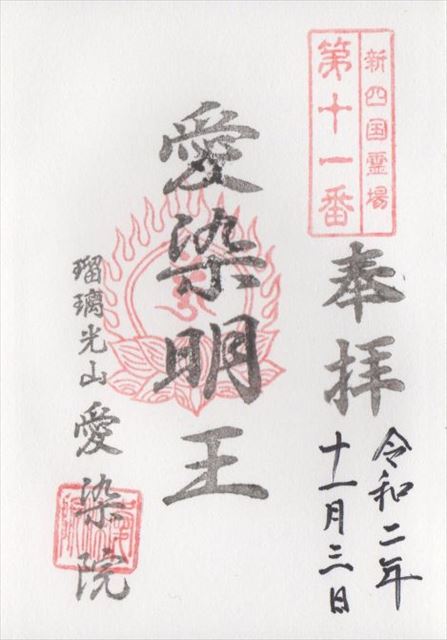 新四国霊場
第十一番
奉拝
令和二年
十一月三日
愛染明王
瑠璃光山 愛染院